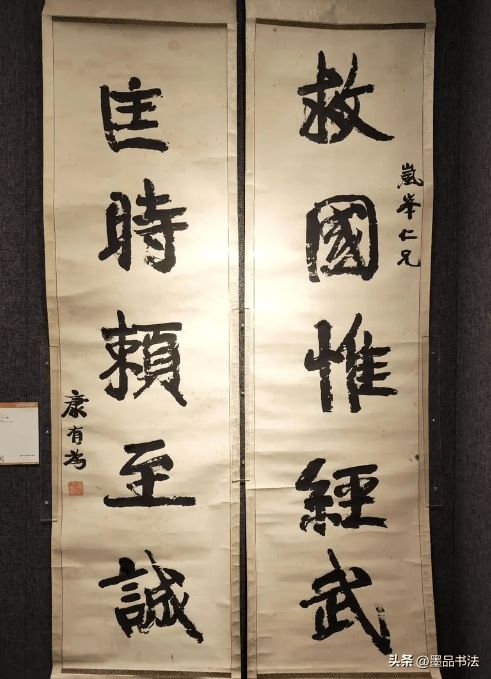 救國惟經武
嵐峯仁兄
匡時賴至誠
康有為
头条 @墨品书法